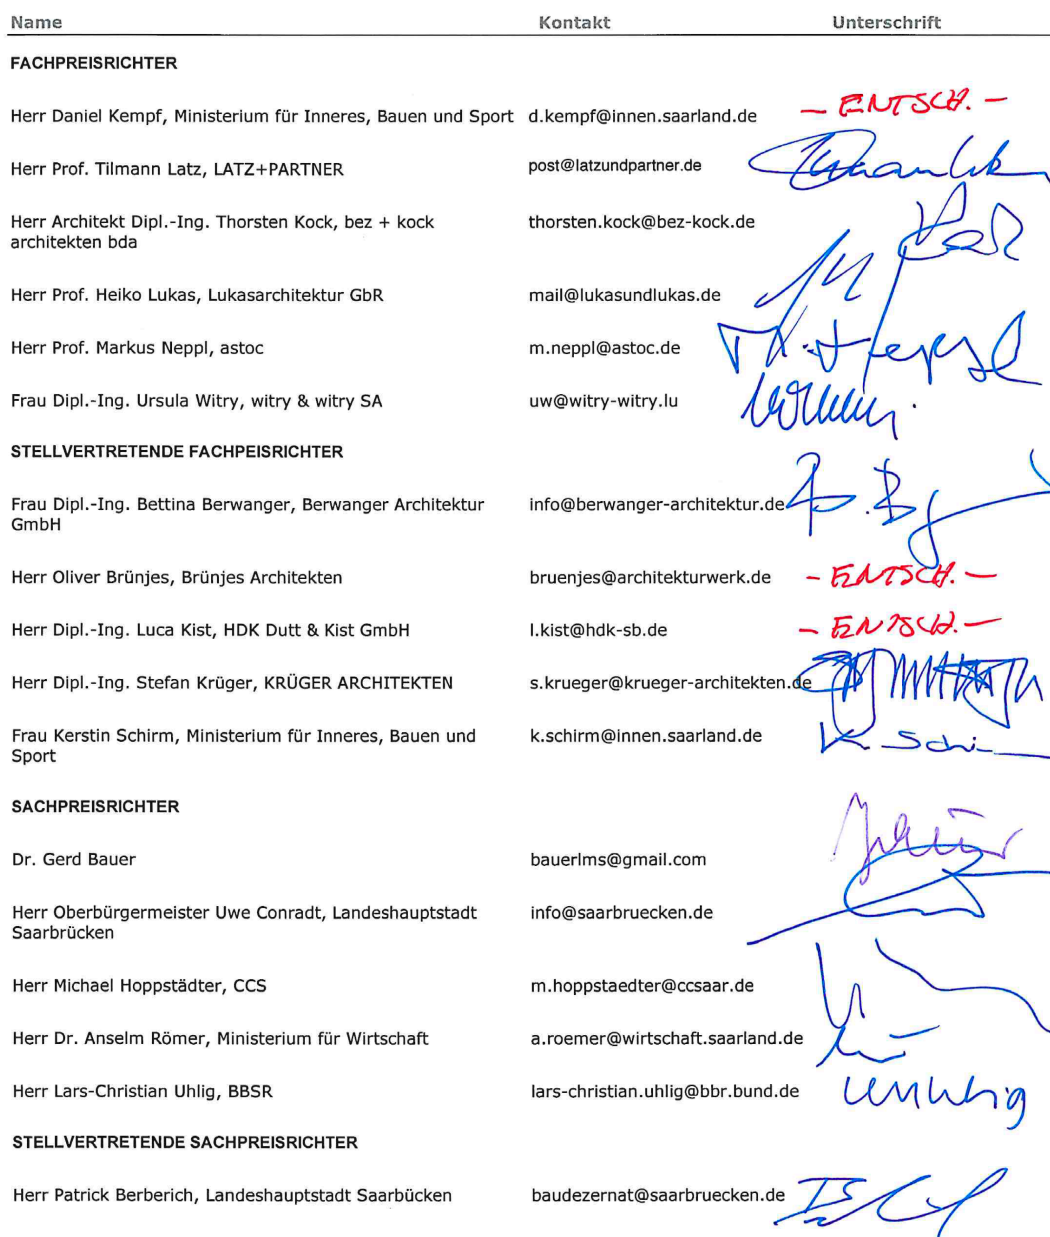 Name Kontakt Unterschrift
FACHPREISRICHTER
Herr Daniel Kempf, Ministerium für Inneres, Bauen und Sport d.kempf@innen.saarland.de - ENTSCH. -
Herr Prof. Tilmann Latz, LATZ+PARTNER post@latzundpartner.de
Herr Architekt Dipl.-Ing. Thorsten Kock, bez + kock thorsten.kock@bez-kock.de
architekten bda
Herr Prof. Heiko Lukas, Lukasarchitektur GbR mail@lukasundlukas.de
Herr Prof. Markus Neppl, astoc m.neppl@astoc.de
Frau Dipl.-Ing. Ursula Witry, witry & witry SA uw@witry-witry.lu
STELLVERTRETENDE FACHPEISRICHTER
Frau Dipl.-Ing. Bettina Berwanger, Berwanger Architektur info@berwanger-architektur.de
GmbH
Herr Oliver Brünjes, Brünjes Architekten bruenjes@architekturwerk.de - ENTSCH. -
Herr Dipl.-Ing. Luca Kist, HDK Dutt & Kist GmbH l.kist@hdk-sb.de - ENTSCH. -
Herr Dipl.-Ing. Stefan Krüger, KRÜGER ARCHITEKTEN s.krueger@krueger-architekten.de
Frau Kerstin Schirm, Ministerium für Inneres, Bauen und k.schirm@innen.saarland.de K. Schi
Sport
SACHPREISRICHTER
Dr. Gerd Bauer bauerlms@gmail.com
Herr Oberbürgermeister Uwe Conradt, Landeshauptstadt info@saarbruecken.de
Saarbrücken
Herr Michael Hoppstädter, CCS m.hoppstaedter@ccsaar.de
Herr Dr. Anselm Römer, Ministerium für Wirtschaft a.roemer@wirtschaft.saarland.de
Herr Lars-Christian Uhlig, BBSR lars-christian.uhlig@bbr.bund.de
STELLVERTRETENDE SACHPREISRICHTER
Herr Patrick Berberich, Landeshauptstadt Saarbücken baudezernat@saarbruecken.de